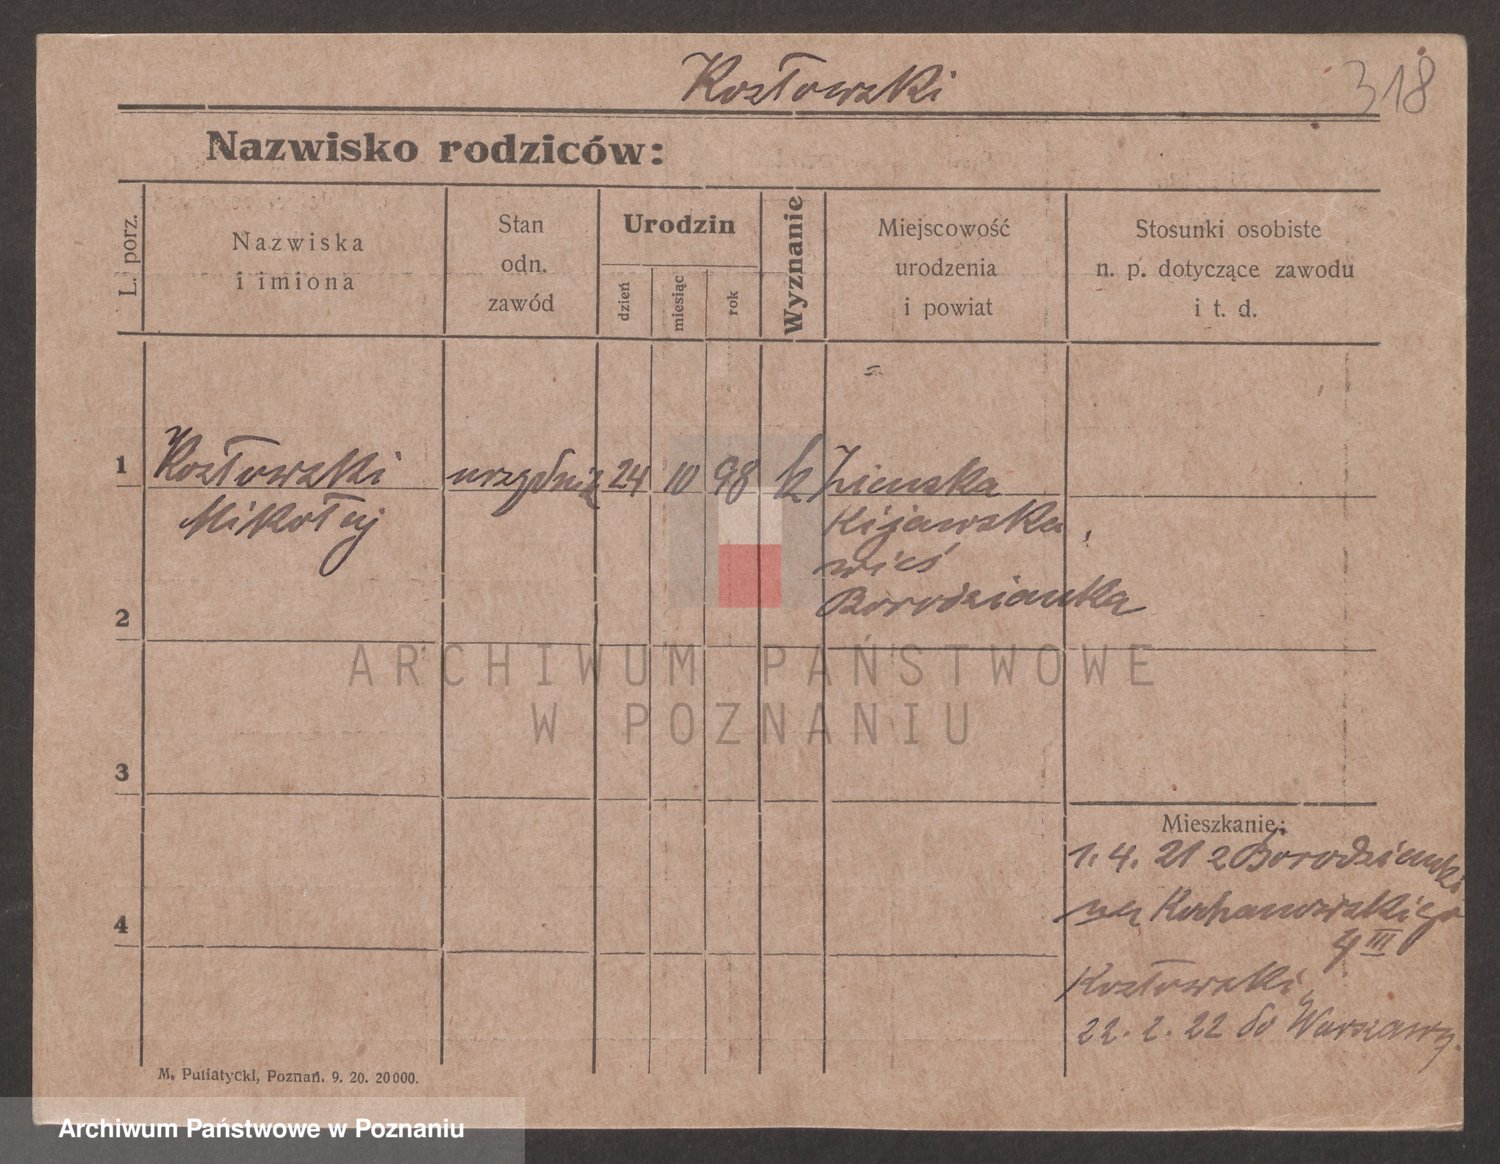 Kozłowski
318
Nazwisko rodziców:
L. porz.
Nazwiska
i imiona
Stan
odn.
zawód
Urodzin
dzień
miesiąc
rok
Wyznanie
Miejscowość
urodzenia
i powiat
Stosunki osobiste
n. p. dotyczące zawodu
i t. d.
1
Kozłowski urzędnik 24 10 98 k Ziemska
Mikołaj
Kijawska,
wieś
Borodzianka
2
ARCHIWUM PAŃSTWOWE
W POZNANIU
3
Mieszkanie:
1. 4. 21 z Borodzianki
4
na Kochanowskiego
4 III
Kozłowski
22. 2. 22 do Warszawy.
M. Putiatycki, Poznań. 9. 20. 20000.
Archiwum Państwowe w Poznaniu